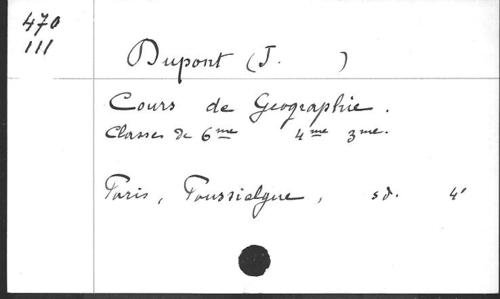 470
III
Dupont (J. )
Cours de Geographie.
Classes de 6me 4me 3me.
Paris, Poussielgue, sd. 4°